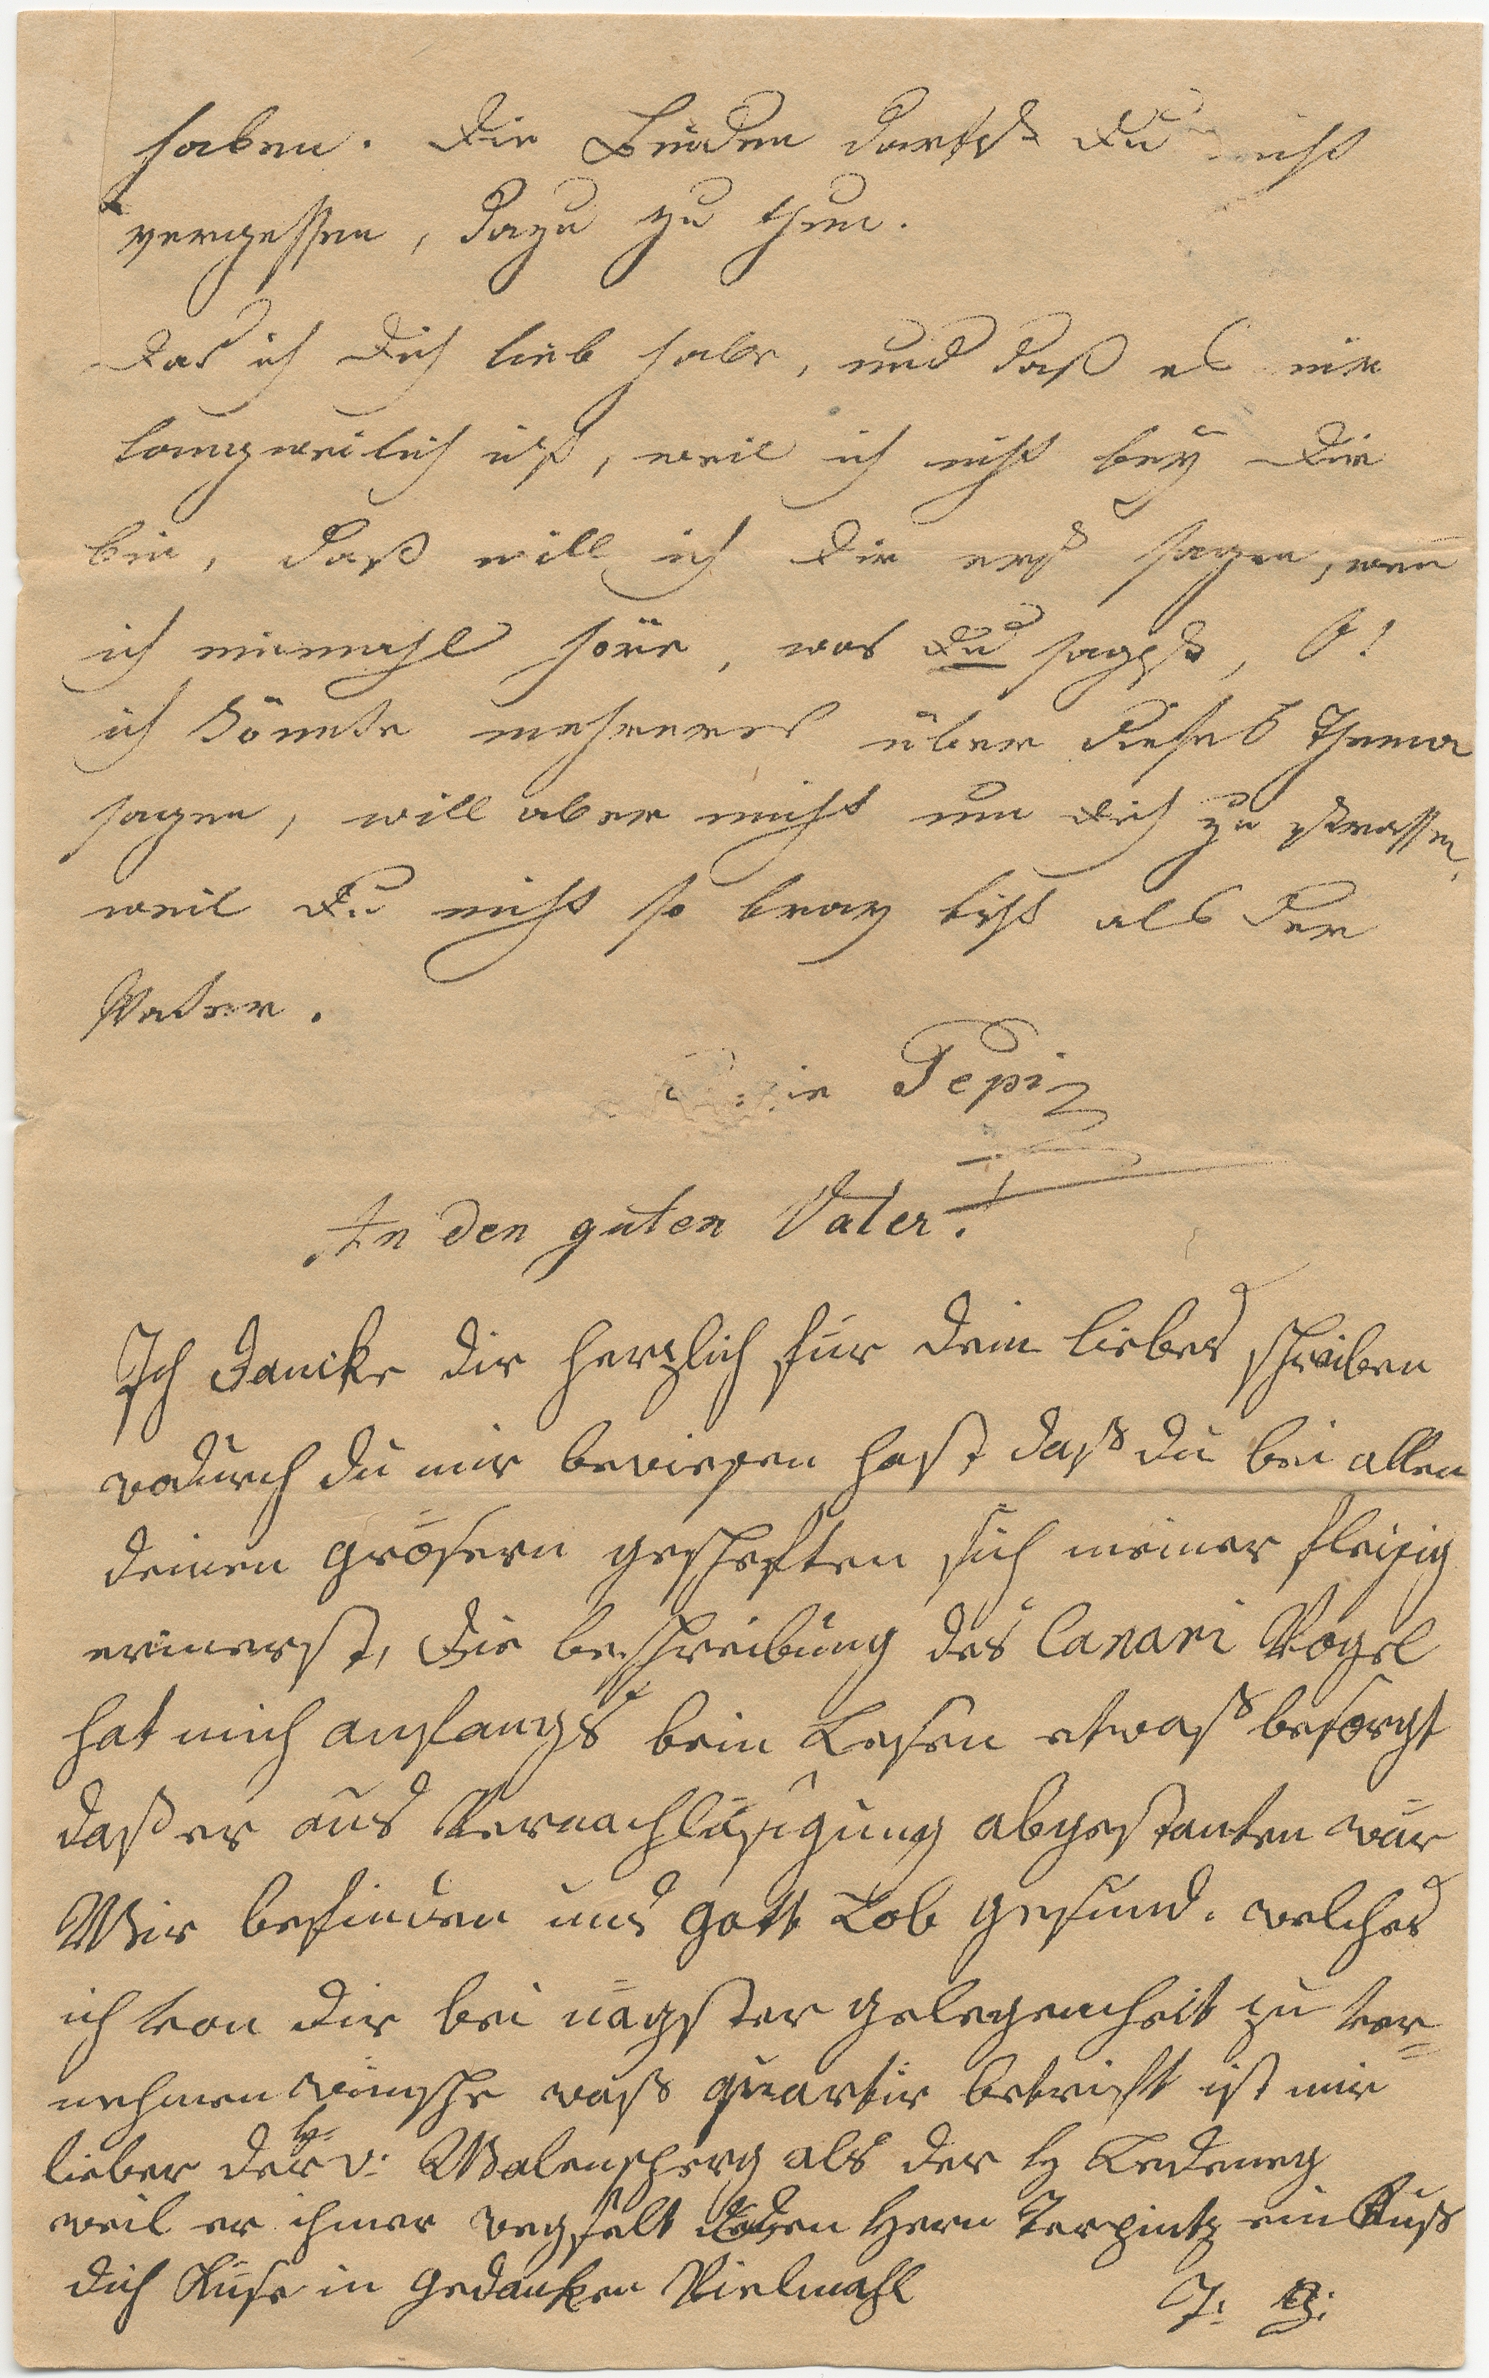 haben. Die Bruder darfst Du nicht
vergessen, dazu zu thun.
Das ich Dich lieb habe, und daß es mir
langweilich ist, weil ich nicht bey Dir
bin, daß will ich Dir erst sagen, wen
ich einmahl höre, was Du sagst, O!
ich könnte mehreres über dieses Thema
sagen, will aber nicht um Dich zu straffen,
weil Du nicht so brav bist als der
Vater.
Pepi
An den guten Vater.
Ich dancke dir herzlich für dein liebes schreiben
wodurch du mir bewiesen hast daß du bei allen
deinen grösern gescheften sich meiner fleisig
erinerst, Die beschreibung des Canari Vogel
hat mich anfangs beim Lesen etwaß besorgt
daß er aus Vernachläsigung abgestanten wär
Wir befinden uns gott Lob gesund. welches
ich von dir bei nägster gelegenheit zu ver=
nehmen wünsche waß quartir betrift ist mir
lieber der H. v: als der H
weil er ihmer den Hern ein Kuß
dich Küse in gedanken Vielmahl
J: B: